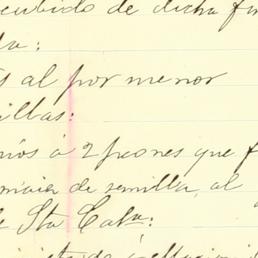 recibido de dicha fin
da:
s al por menor
illas:
nios á 2 peones que f
maiz de semilla, al
de Sta Cata: